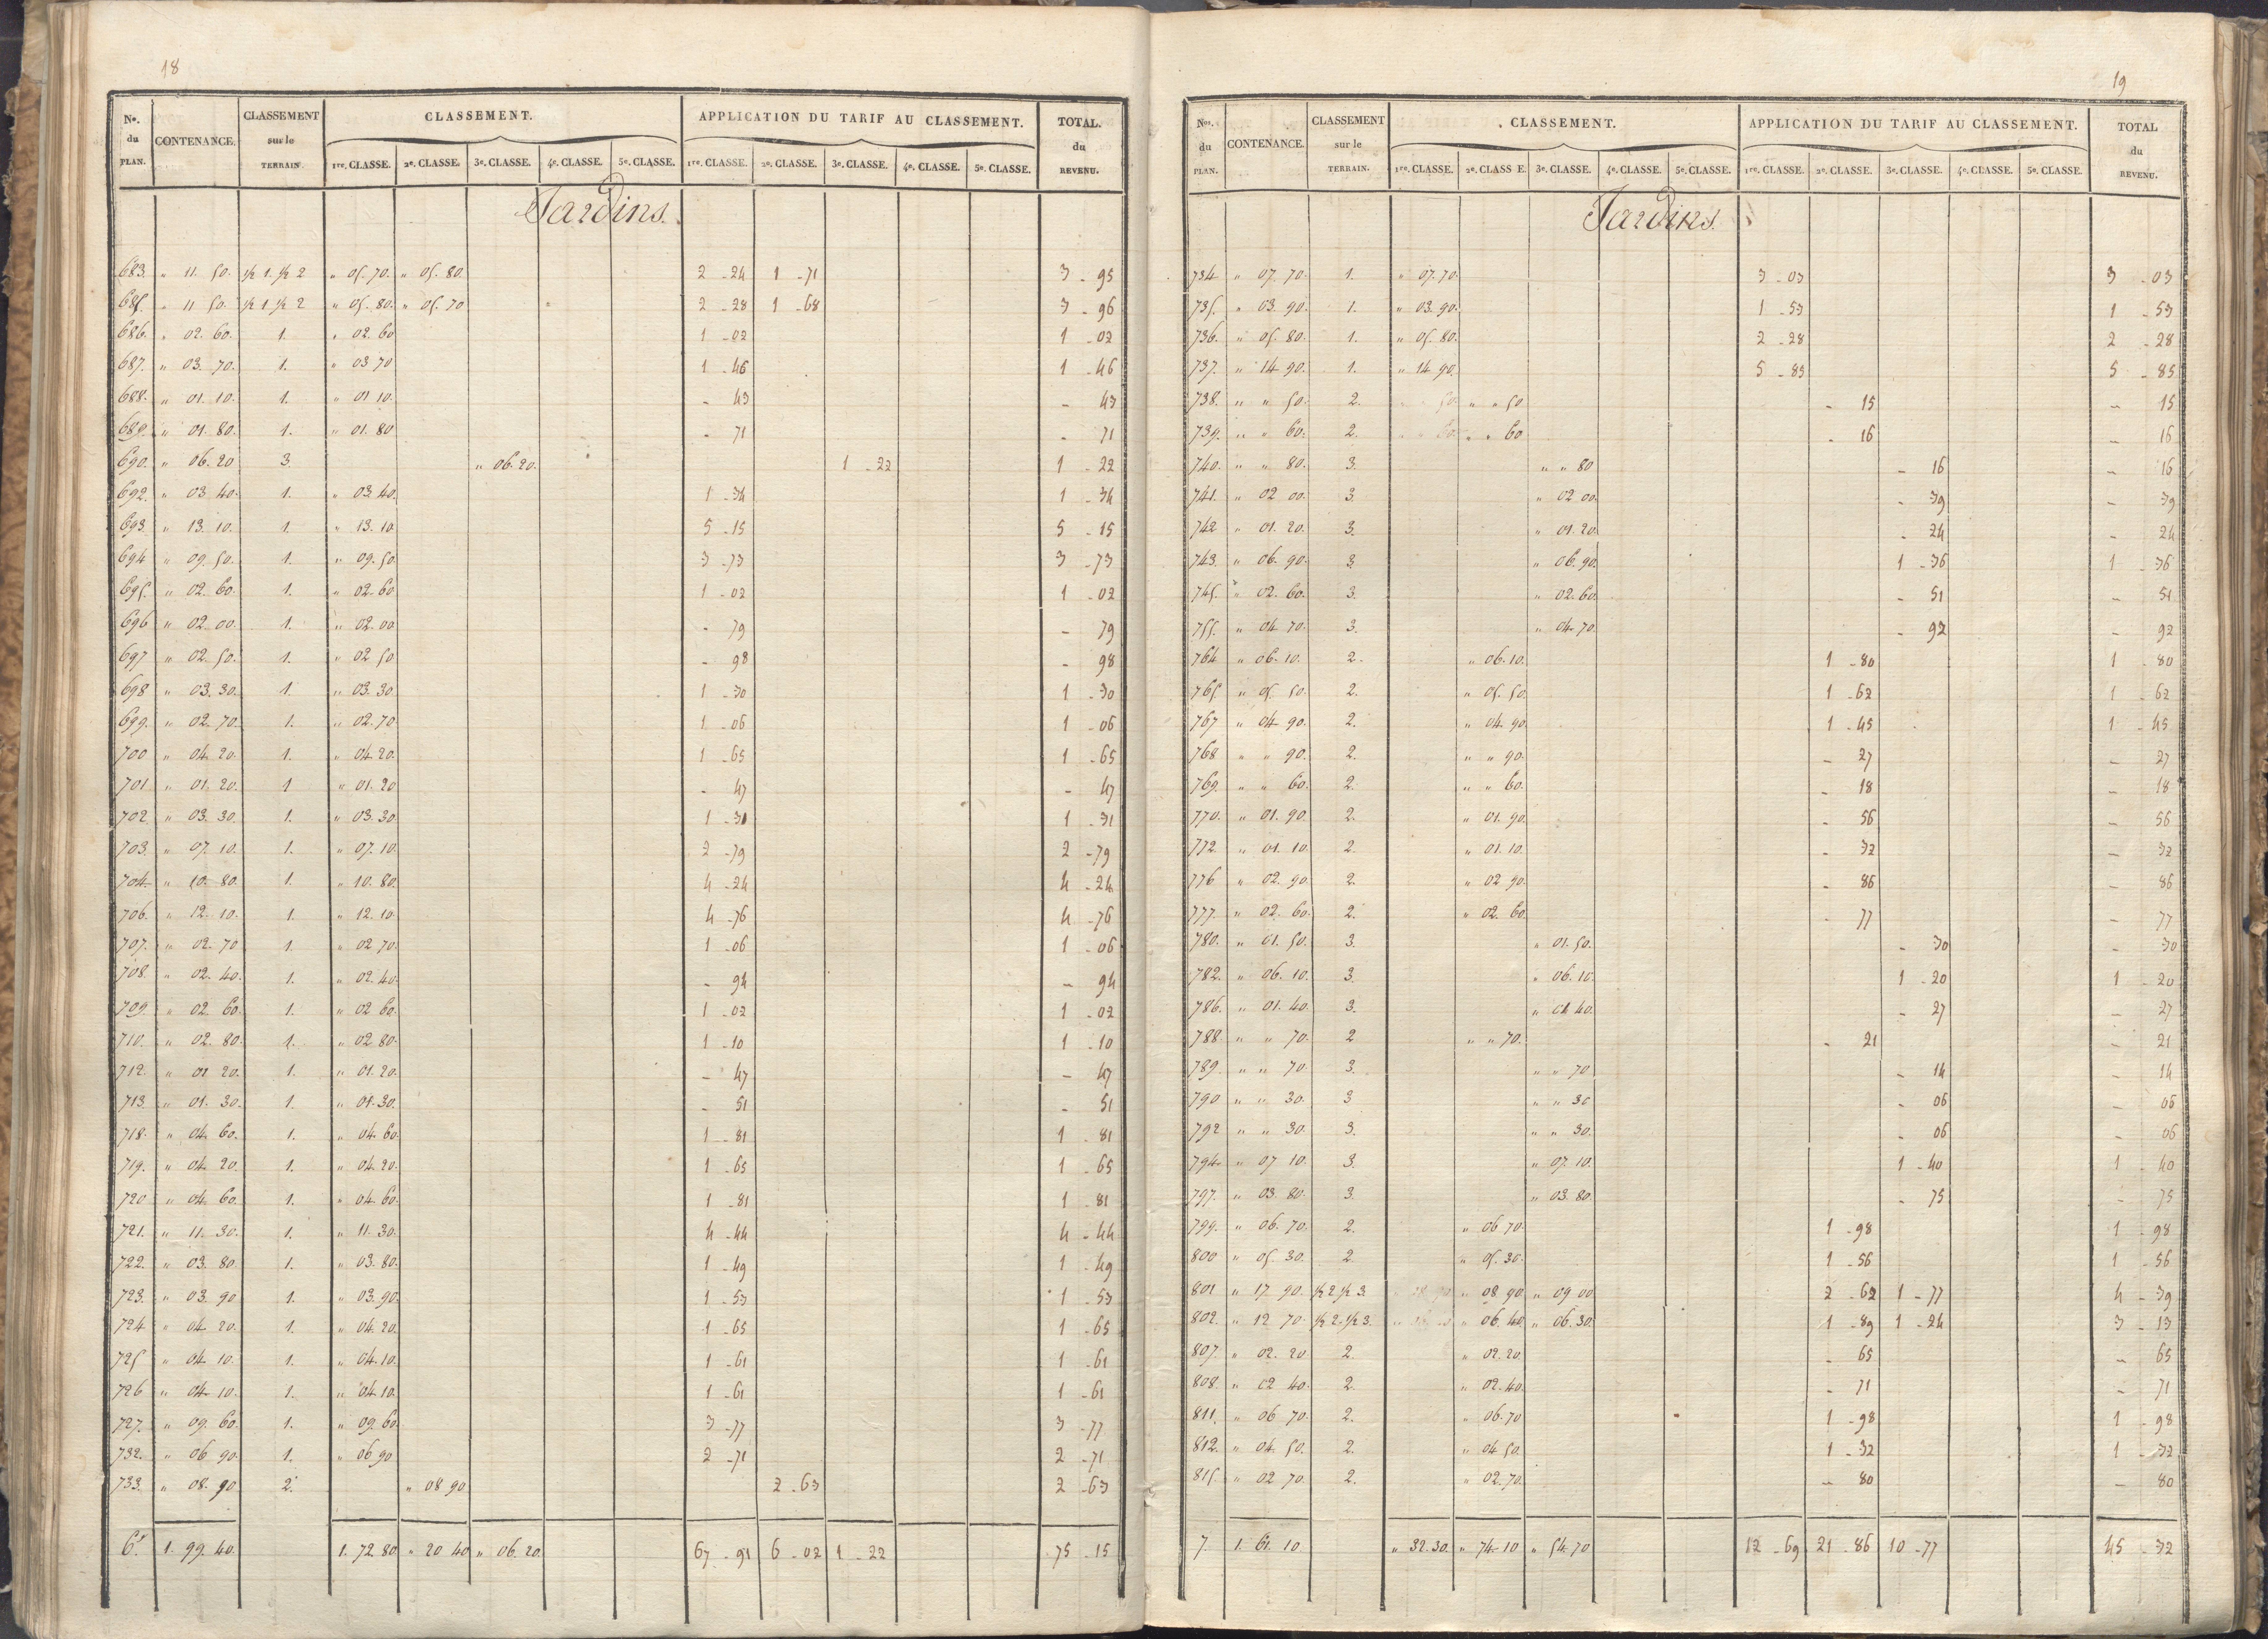 18
Nos. du PLAN. CONTENANCE. CLASSEMENT sur le TERRAIN. CLASSEMENT. APPLICATION DU TARIF AU CLASSEMENT. TOTAL. du REVENU.
1re. CLASSE. 2e. CLASSE. 3e. CLASSE. 4e. CLASSE. 5e. CLASSE. 1re. CLASSE. 2e. CLASSE. 3e. CLASSE. 4e. CLASSE. 5e. CLASSE.
Jardins.
683. " 11. 50. ½ 1. ½ 2 " 05. 70. " 05. 80. 2 - 24 1 - 71 3 - 95
685. " 11 50. ½ 1. ½ 2 " 05. 80. " 05. 70 2 - 28 1 - 68 3 - 96
686. " 02. 60. 1. " 02. 60 1 - 02 1 - 02
687. " 03. 70. 1. " 03 70 1 - 46 1 - 46
688. " 01. 10. 1. " 01 10. - 43 - 43
689. " 01. 80. 1. " 01. 80 - 71 - 71
690. " 06. 20 3. " 06. 20. 1 - 22 1 - 22
692. " 03 40. 1. " 03 40. 1 - 34 1 - 34
693. " 13. 10. 1. " 13. 10. 5 - 15 5 - 15
694 " 09. 50. 1. " 09. 50. 3 - 73 3 - 73
695. " 02. 60. 1. " 02. 60 1 - 02 1 - 02
696 " 02. 00. 1. " 02. 00 - 79 - 79
697 " 02. 50. 1. " 02 50 - 98 - 98
698 " 03. 30. 1. " 03. 30. 1 - 30 1 - 30
699. " 02. 70. 1. " 02. 70 1 - 06 1 - 06
700 " 04. 20. 1. " 04. 20. 1 - 65 1 - 65
701 " 01. 20. 1 " 01. 20 - 47 - 47
702. " 03. 30. 1. " 03. 30. 1 - 31 1 - 31
703. " 07. 10. 1. " 07. 10. 2 - 79 2 - 79
704. " 10. 80. 1. " 10. 80. 4 - 24 4 - 24
706. " 12. 10. 1. " 12. 10. 4 - 76 4 - 76
707. " 02. 70 1. " 02 70. 1 - 06 1 - 06
708. " 02. 40. 1. " 02. 40. - 94 - 94
709. " 02. 60. 1. " 02 60. 1 - 02 1 - 02
710. " 02. 80. 1. " 02 80. 1 - 10 1 - 10
712. " 01 20. 1. " 01. 20. - 47 - 47
713. " 01. 30. 1. " 01. 30. - 51 - 51
718. " 04. 60. 1. " 04. 60. 1 - 81 1 - 81
719. " 04. 20. 1. " 04. 20. 1 - 65 1 - 65
720 " 04. 60. 1. " 04. 60. 1 - 81 1 - 81
721. " 11. 30. 1. " 11. 30. 4 - 44 4 - 44
722. " 03. 80. 1. " 03. 80. 1 - 49 1 - 49
723. " 03. 90 1. " 03. 90. 1 - 53 1 - 53
724. " 04. 20. 1. " 04. 20. 1 - 65 1 - 65
725 " 04. 10. 1. " 04. 10. 1 - 61 1 - 61
726 " 04. 10. 1. " 04. 10. 1 - 61 1 - 61
727. " 09. 60. 1. " 09. 60. 3 - 77 3 - 77
732. " 06 90. 1. " 06 90 2 - 71 2 - 71
733. " 08. 90 2. " 08 90 2 - 63 2 - 63
6. 1. 99. 40. 1. 72. 80 " 20 40 " 06. 20. 67 - 91 6 - 02 1 - 22 75 - 15
19
Nos. du PLAN. CONTENANCE. CLASSEMENT sur le TERRAIN. CLASSEMENT. APPLICATION DU TARIF AU CLASSEMENT. TOTAL du REVENU.
1re. CLASSE. 2e. CLASS E. 3e. CLASSE. 4e. CLASSE. 5e. CLASSE. 1re. CLASSE. 2e. CLASSE. 3e. CLASSE. 4e. CLASSE. 5e. CLASSE.
Jardins.
734 " 07. 70. 1. " 07. 70. 3 - 03 3 - 03
735. " 03. 90. 1. " 03. 90. 1 - 53 1 - 53
736. " 05. 80. 1. " 05. 80. 2 - 28 2 - 28
737. " 14. 90. 1. " 14. 90. 5 - 85 5 - 85
738. " " 50. 2. " " 50 - 15 - 15
739. " " 60. 2. " " 60 - 16 - 16
740. " " 80. 3. " " 80 - 16 - 16
741. " 02 00. 3. " 02 00. - 39 - 39
742 " 01. 20. 3. " 01. 20. - 24 - 24
743. " 06. 90. 3 " 06. 90. 1 - 36 1 - 36
745. " 02. 60. 3. " 02. 60. - 51 - 51
755. " 04. 70. 3. " 04. 70. - 92 - 92
764 " 06. 10. 2. " 06. 10. 1 - 80 1 - 80
765. " 05. 50. 2. " 05. 50. 1 - 62 1 - 62
767 " 04. 90. 2. " 04. 90. 1 - 45 1 - 45
768 " " 90. 2. " " 90. - 27 - 27
769. " " 60. 2. " " 60. - 18 - 18
770. " 01. 90. 2. " 01. 90. - 56 - 56
772. " 01. 10. 2. " 01. 10. - 32 - 32
776 " 02. 90. 2. " 02. 90. - 86 - 86
777. " 02. 60. 2. " 02. 60. - 77 - 77
780. " 01. 50. 3. " 01. 50. - 30 - 30
782. " 06. 10. 3. " 06. 10. 1 - 20 1 - 20
786. " 01. 40. 3. " 01 40. - 27 - 27
788. " " 70. 2 " " 70. - 21 - 21
789. " " 70. 3. " " 70 - 14 - 14
790 " " 30. 3 " " 30 - 06 - 06
792 " " 30. 3. " " 30. - 06 - 06
794 " 07 10. 3. " 07. 10. 1 - 40 1 - 40
797. " 03. 80. 3. " 03. 80. - 75 - 75
799. " 06. 70. 2. " 06 70. 1 - 98 1 - 98
800 " 05. 30. 2. " 05. 30. 1 - 56 1 - 56
801 " 17. 90. ½ 2 ½ 3. " 08 90 " 09 00 2 - 62 1 - 77 4 - 39
802. " 12 70. ½ 2. ½ 3. " 06. 40. " 06. 30. 1 - 89 1 - 24 3 - 13
807. " 02. 20 2. " 02. 20. - 65 - 65
808. " 02 40. 2. " 02. 40. - 71 - 71
811. " 06 70. 2. " 06. 70 1 - 98 1 - 98
812. " 04. 50. 2. " 04 50. 1 - 32 1 - 32
815. " 02 70. 2. " 02. 70. - 80 - 80
7. 1. 61. 10. " 32. 30. " 74. 10 " 54. 70 12 - 69 21 - 86 10 - 77 45 - 32